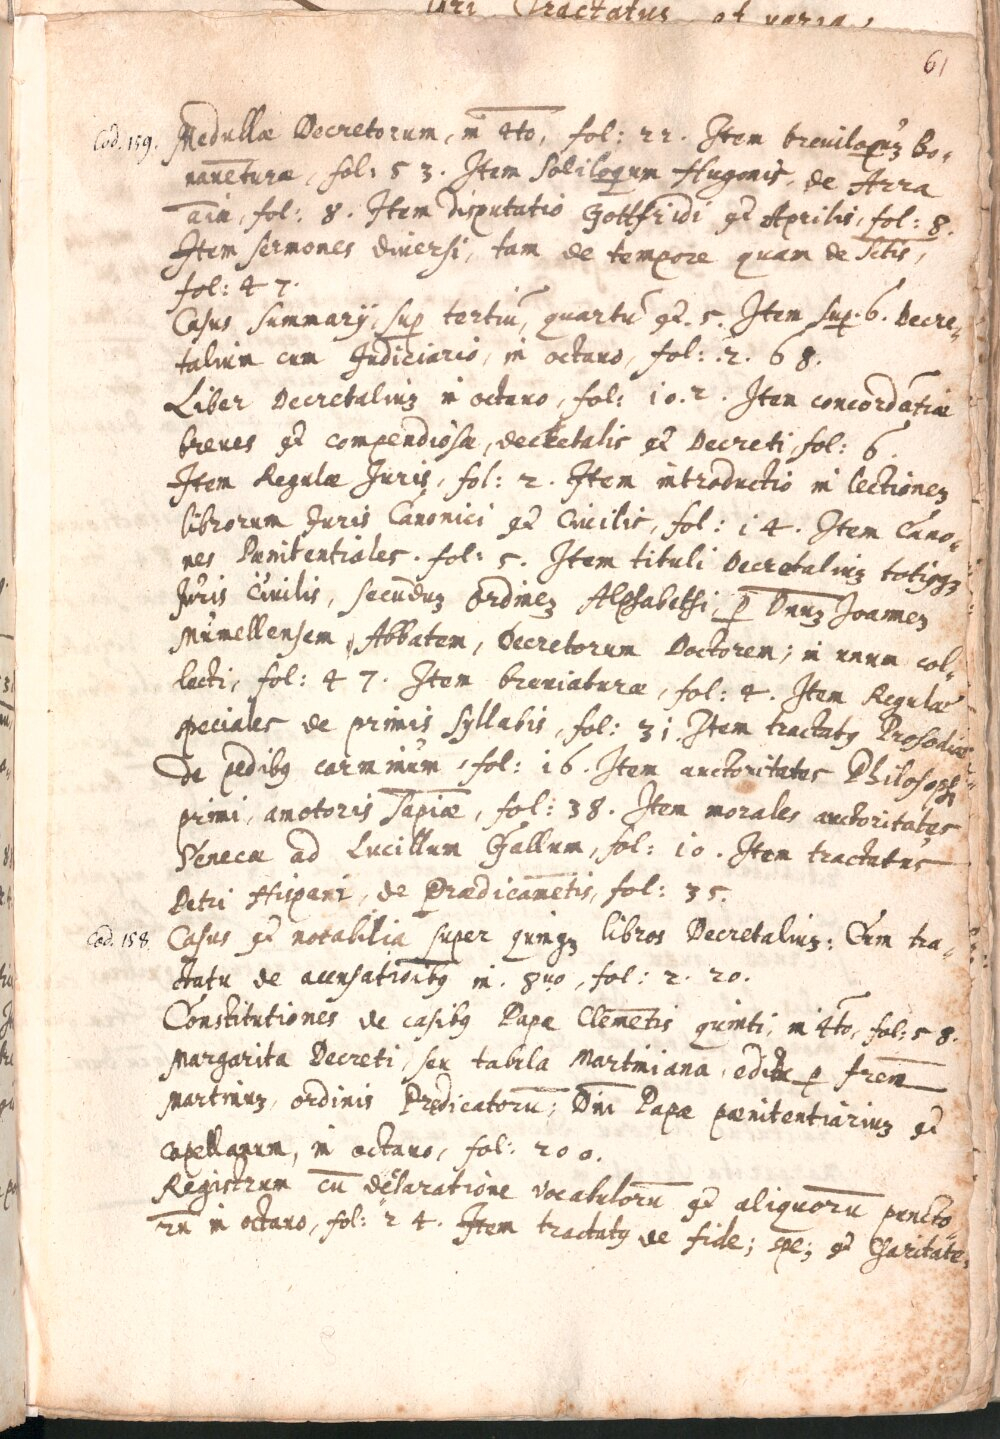 61
Cod. 159. Medullæ Decretorum, in 4to, fol: 22. Item breuiloquiũ bo-
nauẽturæ, fol: 53. Item Soliloquium Hugonis, de Arra
aiæ, fol: 8. Item disputatio Gottfridi et Aprilis, fol: 8.
Item sermones diuersi, tam de tempore quam de Sctis,
fol: 47.
Casus summarij, sup tertiũ, quartũ et. 5. Item sup. 6. Decre-
talium cum Judiciario, in octauo, fol: 268.
Liber Decretaliuʒ in octauo, fol: 102. Item concordãtiæ
breues et compendiosæ, decretalis et Decreti, fol: 6.
Item Regulæ Juris, fol: 2. Item introductio in lectioneʒ
librorum Juris Canonici et Ciuilis, fol: 14. Item Cano-
nes Pænitentiales. fol: 5. Item tituli Decretaliuʒ totiusqʒ
Juris Ciuilis, secũduʒ Ordineʒ Alphabethi, p Dnuʒ Joanneʒ
Mumellensem, Abbatem, Decretorum Doctorem; in unum col-
lecti, fol: 47. Item breuiaturæ, fol: 4. Item Regulæ
speciales de primis syllabis, fol: 31. Item tractatꝰ Prosodiæ
de pedibꝰ carminum, fol: 16. Item auctoritates Philosophi
primi, amotoris Sapiæ, fol: 38. Item morales auctoritates
Senecæ ad Lucillum Gallum, fol: 10. Item tractatus
Petri Hispani, de Prædicamẽtis, fol: 35.
Cod. 158. Casus et notabilia super quinqʒ libros Decretaliuʒ: Cum tra-
ctatu de accusatiõibꝰ in 8uo, fol: 220.
Constitutiones de casibꝰ Papæ Clemẽtis quinti, in 4to, fol: 58.
Margarita Decreti, seu tabula Martiniana, edita p frem
Martinuʒ, ordinis Predicatorũ; Dñi Papæ pænitentiariuʒ et
capellanum, in octauo, fol: 200.
Registrum cũ declaratione vocabulorũ et aliquorũ puncto-
rũ in octauo, fol: 24. Item tractatꝰ de fide; spe; et Charitate.